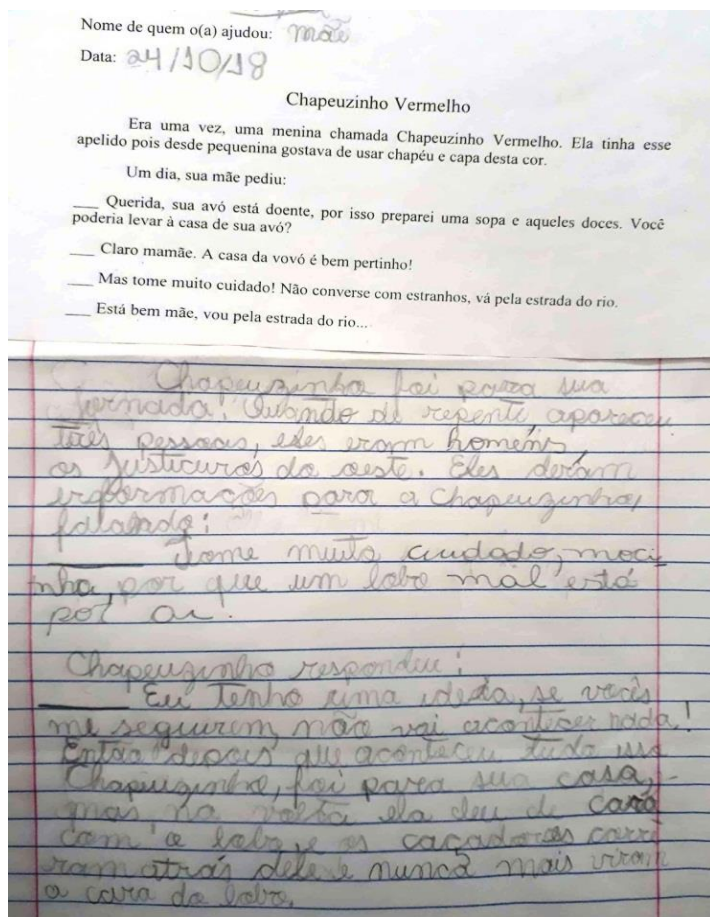 Nome de quem o(a) ajudou: mãe
Data: 24/10/18
Chapeuzinho Vermelho
Era uma vez, uma menina chamada Chapeuzinho Vermelho. Ela tinha esse
apelido pois desde pequenina gostava de usar chapéu e capa desta cor.
Um dia, sua mãe pediu:
___ Querida, sua avó está doente, por isso preparei uma sopa e aqueles doces. Você
poderia levar à casa de sua avó?
___ Claro mamãe. A casa da vovó é bem pertinho!
___ Mas tome muito cuidado! Não converse com estranhos, vá pela estrada do rio.
___ Está bem mãe, vou pela estrada do rio...
Chapeuzinho foi para sua
jornada! Quando de repente, apareceu
três pessoas, eles eram homens,
os justicuros do oeste. Eles deram
informações para a Chapeuzinho,
falando:
___ Tome muito cuidado, moci
nha, por que um lobo mal está
por ai.
Chapeuzinho respondeu:
___ Eu tenho uma ideia, se vocês
me seguirem, não vai acontecer nada!
Então depois que aconteceu tudo isso
Chapeuzinho, foi para sua casa,
mas, na volta ela deu de cara
com o lobo, e os caçadores corre
ram atrás dele e nunca mais viram
a cara do lobo.